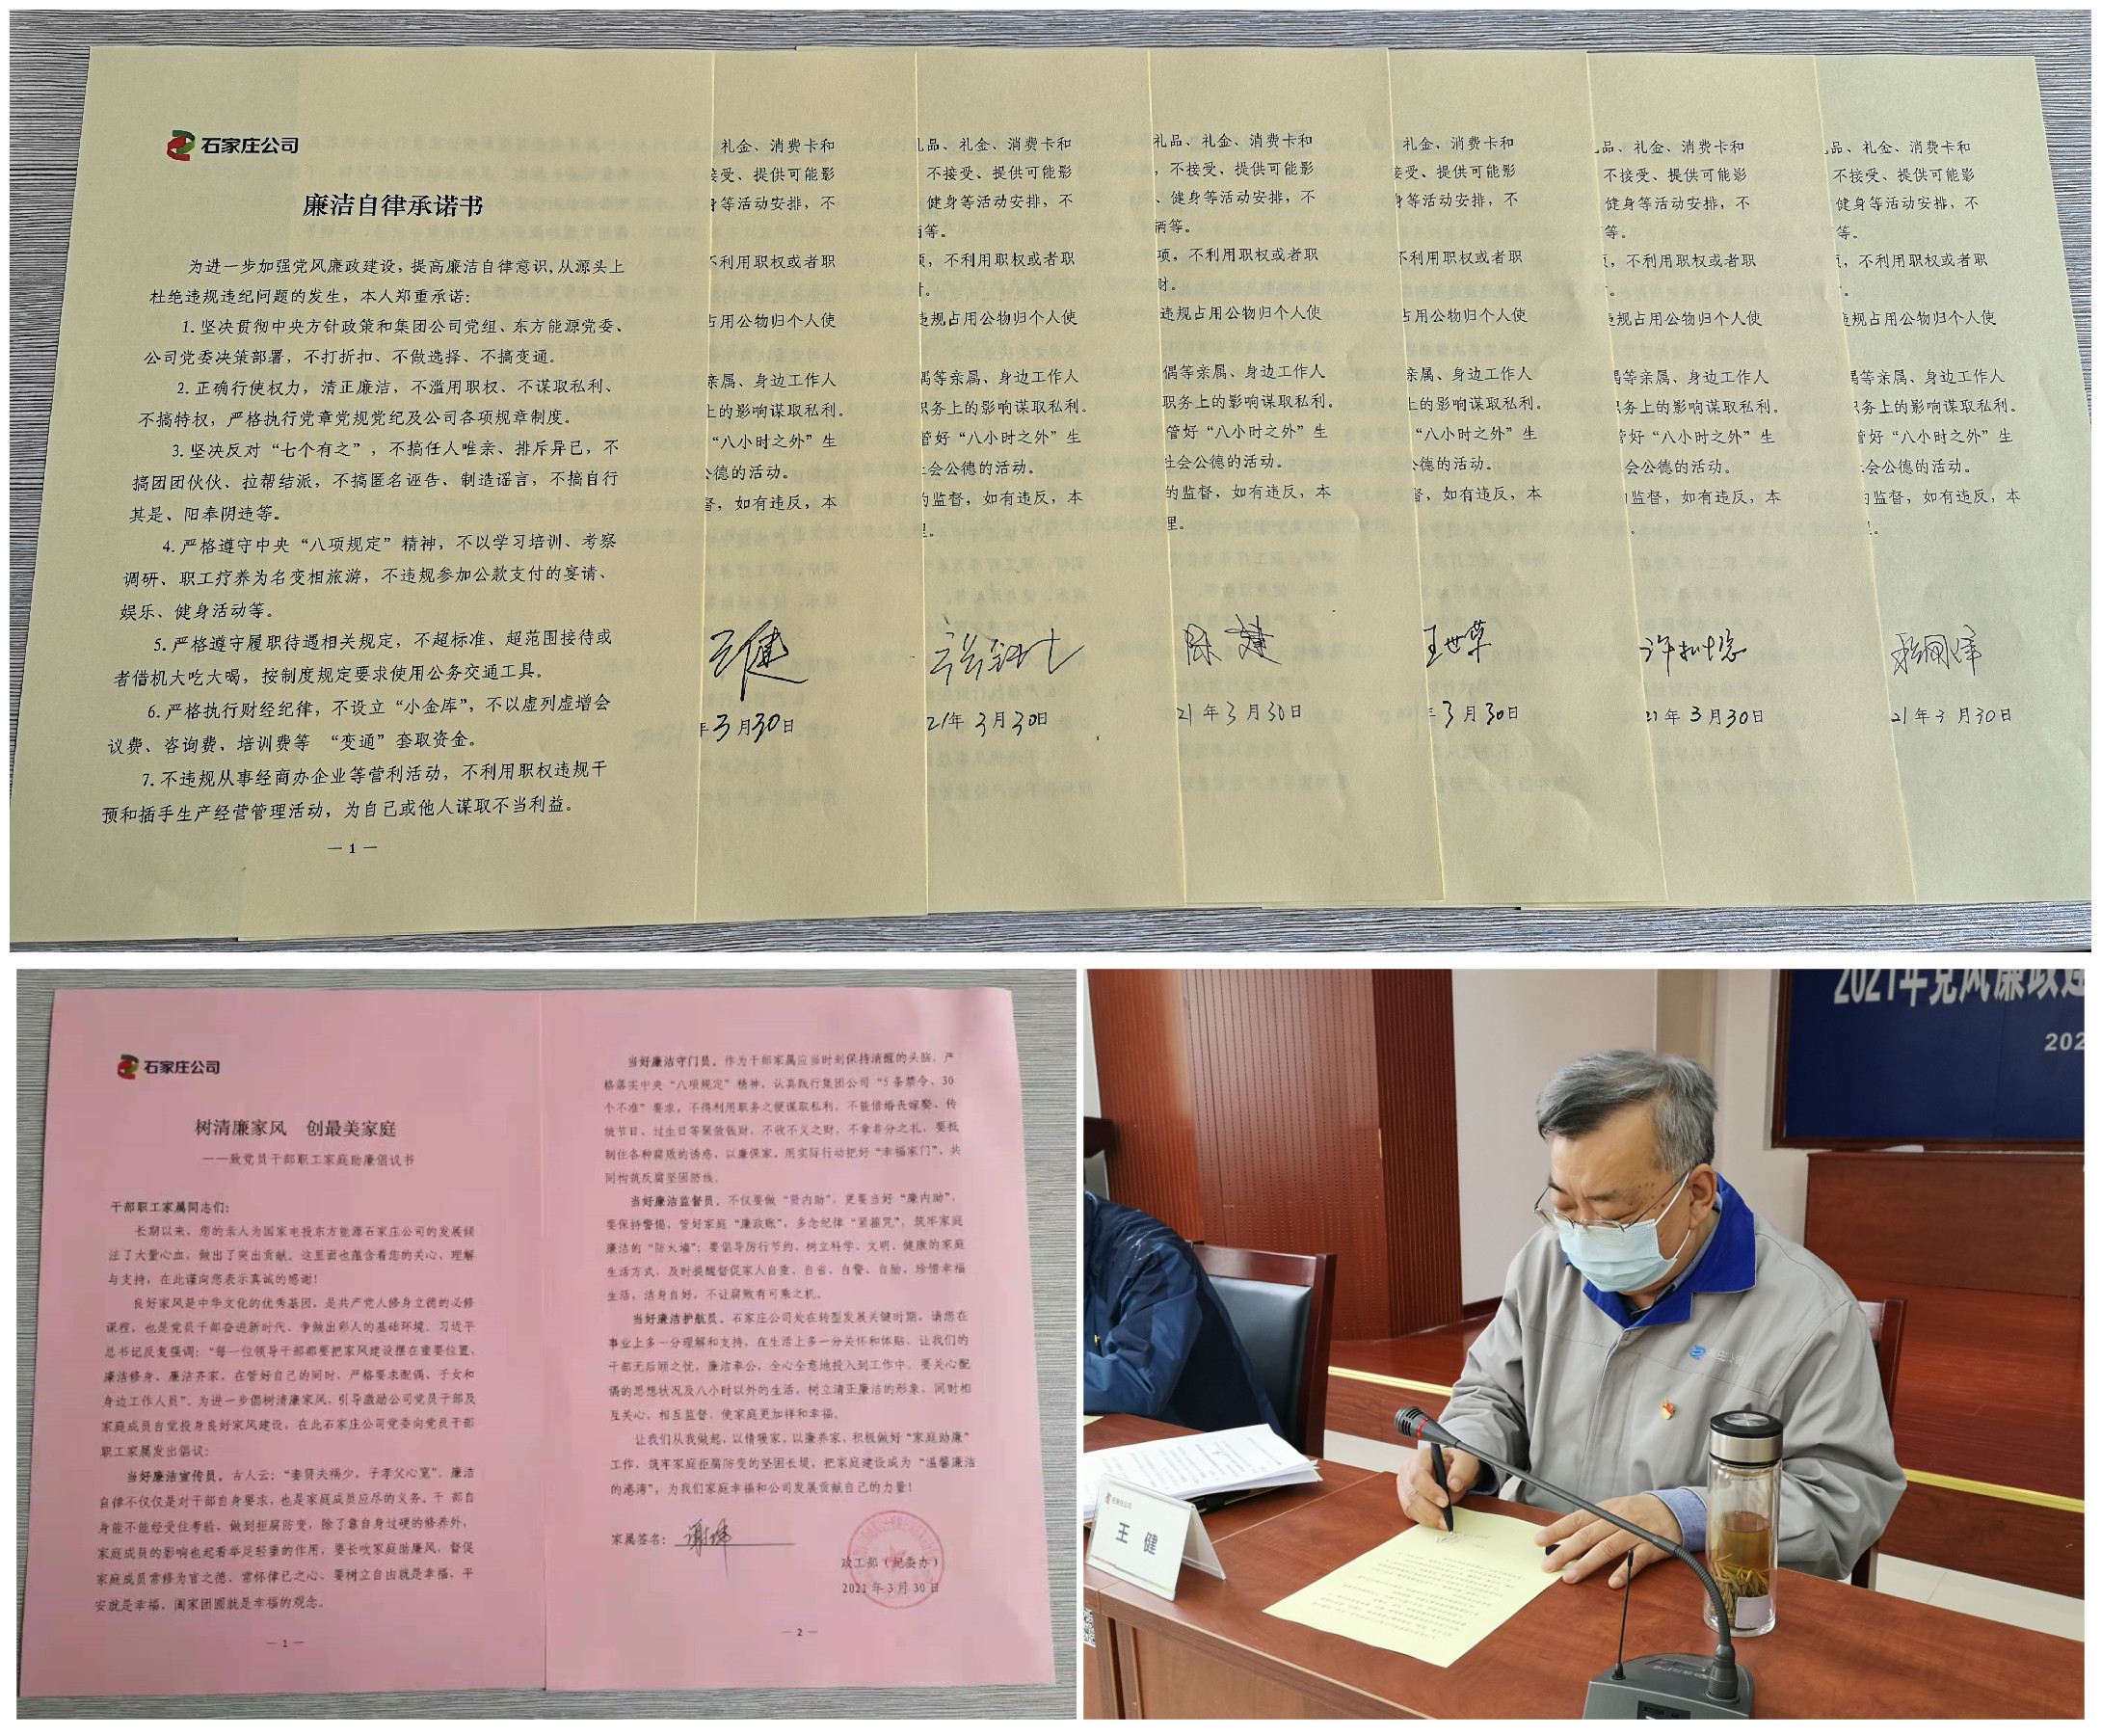 石家庄公司
廉洁自律承诺书
为进一步加强党风廉政建设，提高廉洁自律意识，从源头上
杜绝违规违纪问题的发生，本人郑重承诺：
1.坚决贯彻中央方针政策和集团公司党组、东方能源党委、
公司党委决策部署，不打折扣、不做选择、不搞变通。
2.正确行使权力，清正廉洁，不滥用职权、不谋取私利、
不搞特权，严格执行党章党规党纪及公司各项规章制度。
3.坚决反对“七个有之”，不搞任人唯亲、排斥异己，不
搞团团伙伙、拉帮结派，不搞匿名诬告、制造谣言，不搞自行
其是、阳奉阴违等。
4.严格遵守中央“八项规定”精神，不以学习培训、考察
调研、职工疗养为名变相旅游，不违规参加公款支付的宴请、
娱乐、健身活动等。
5.严格遵守履职待遇相关规定，不超标准、超范围接待或
者借机大吃大喝，按制度规定要求使用公务交通工具。
6.严格执行财经纪律，不设立“小金库”，不以虚列虚增会
议费、咨询费、培训费等 “变通”套取资金。
7.不违规从事经商办企业等营利活动，不利用职权违规干
预和插手生产经营管理活动，为自己或他人谋取不当利益。
— 1 —
礼金、消费卡和
接受、提供可能影
等活动安排，不
不利用职权或者职
占用公物归个人使
亲属、身边工作人
上的影响谋取私利。
“八小时之外”生
公德的活动。
督，如有违反，本
王健
年3月30日
品、礼金、消费卡和
不接受、提供可能影
健身等活动安排，不
等。
不利用职权或者职
违规占用公物归个人使
偶等亲属、身边工作人
职务上的影响谋取私利。
管好“八小时之外”生
会公德的活动。
的监督，如有违反，本
理。
21年3月30日
礼品、礼金、消费卡和
，不接受、提供可能影
、健身等活动安排，不
柄等。
项，不利用职权或者职
财。
违规占用公物归个人使
偶等亲属、身边工作人
职务上的影响谋取私利。
管好“八小时之外”生
社会公德的活动。
的监督，如有违反，本
理。
陈建
21年3月30日
礼金、消费卡和
接受、提供可能影
等活动安排，不
不利用职权或者职
占用公物归个人使
亲属、身边工作人
上的影响谋取私利。
“八小时之外”生
公德的活动。
督，如有违反，本
王世荣
年3月30日
品、礼金、消费卡和
不接受、提供可能影
健身等活动安排，不
等。
，不利用职权或者职
违规占用公物归个人使
偶等亲属、身边工作人
职务上的影响谋取私利。
管好“八小时之外”生
会公德的活动。
监督，如有违反，本
21年3月30日
品、礼金、消费卡和
不接受、提供可能影
健身等活动安排，不
等。
，不利用职权或者职
违规占用公物归个人使
偶等亲属、身边工作人
职务上的影响谋取私利。
管好“八小时之外”生
会公德的活动。
监督，如有违反，本
21年3月30日
石家庄公司
树清廉家风 创最美家庭
——致党员干部职工家庭助廉倡议书
干部职工家属同志们：
长期以来，您的亲人为国家电投东方能源石家庄公司的发展倾
注了大量心血，做出了突出贡献。这里面也蕴含着您的关心、理解
与支持，在此谨向您表示真诚的感谢！
良好家风是中华文化的优秀基因，是共产党人修身立德的必修
课程，也是党员干部奋进新时代、争做出彩人的基础环境。习近平
总书记反复强调：“每一位领导干部都要把家风建设摆在重要位置，
廉洁修身、廉洁齐家，在管好自己的同时，严格要求配偶、子女和
身边工作人员”。为进一步倡树清廉家风，引导激励公司党员干部及
家庭成员自觉投身良好家风建设，在此石家庄公司党委向党员干部
职工家属发出倡议：
当好廉洁宣传员。古人云：“妻贤夫祸少，子孝父心宽”。廉洁
自律不仅仅是对干部自身要求，也是家庭成员应尽的义务。干 部自
身能不能经受住考验，做到拒腐防变，除了靠自身过硬的修养外，
家庭成员的影响也起着举足轻重的作用，要长吹家庭助廉风，督促
家庭成员常修为官之德、常怀律己之心，要树立自由就是幸福、平
安就是幸福、阖家团圆就是幸福的观念。
— 1 —
当好廉洁守门员。作为干部家属应当时刻保持清醒的头脑，严
格落实中央“八项规定”精神，认真践行集团公司“5条禁令、30
个不准”要求，不得利用职务之便谋取私利，不能借婚丧嫁娶、传
统节日、过生日等聚敛钱财，不收不义之财，不拿非分之礼，要抵
制住各种腐败的诱惑，以廉保家，用实际行动把好“幸福家门”，共
同构筑反腐坚固防线。
当好廉洁监督员。不仅要做“贤内助”，更要当好“廉内助”，
要保持警惕，管好家庭“廉政账”，多念纪律“紧箍咒”，筑牢家庭
廉洁的“防火墙”；要倡导厉行节约，树立科学、文明、健康的家庭
生活方式，及时提醒督促家人自重、自省、自警、自励，珍惜幸福
生活，洁身自好，不让腐败有可乘之机。
当好廉洁护航员。石家庄公司处在转型发展关键时期，请您在
事业上多一分理解和支持，在生活上多一分关怀和体贴，让我们的
干部无后顾之忧，廉洁奉公，全心全意地投入到工作中。要关心配
偶的思想状况及八小时以外的生活，树立清正廉洁的形象，同时相
互关心，相互监督，使家庭更加祥和幸福。
让我们从我做起，以情暖家，以廉养家，积极做好“家庭助廉”
工作，筑牢家庭拒腐防变的坚固长堤，把家庭建设成为“温馨廉洁
的港湾”，为我们家庭幸福和公司发展贡献自己的力量！
家属签名：
政工部（纪委办）
2021年3月30日
— 2 —
2021年党风廉政建
202
石家庄公司
王 健